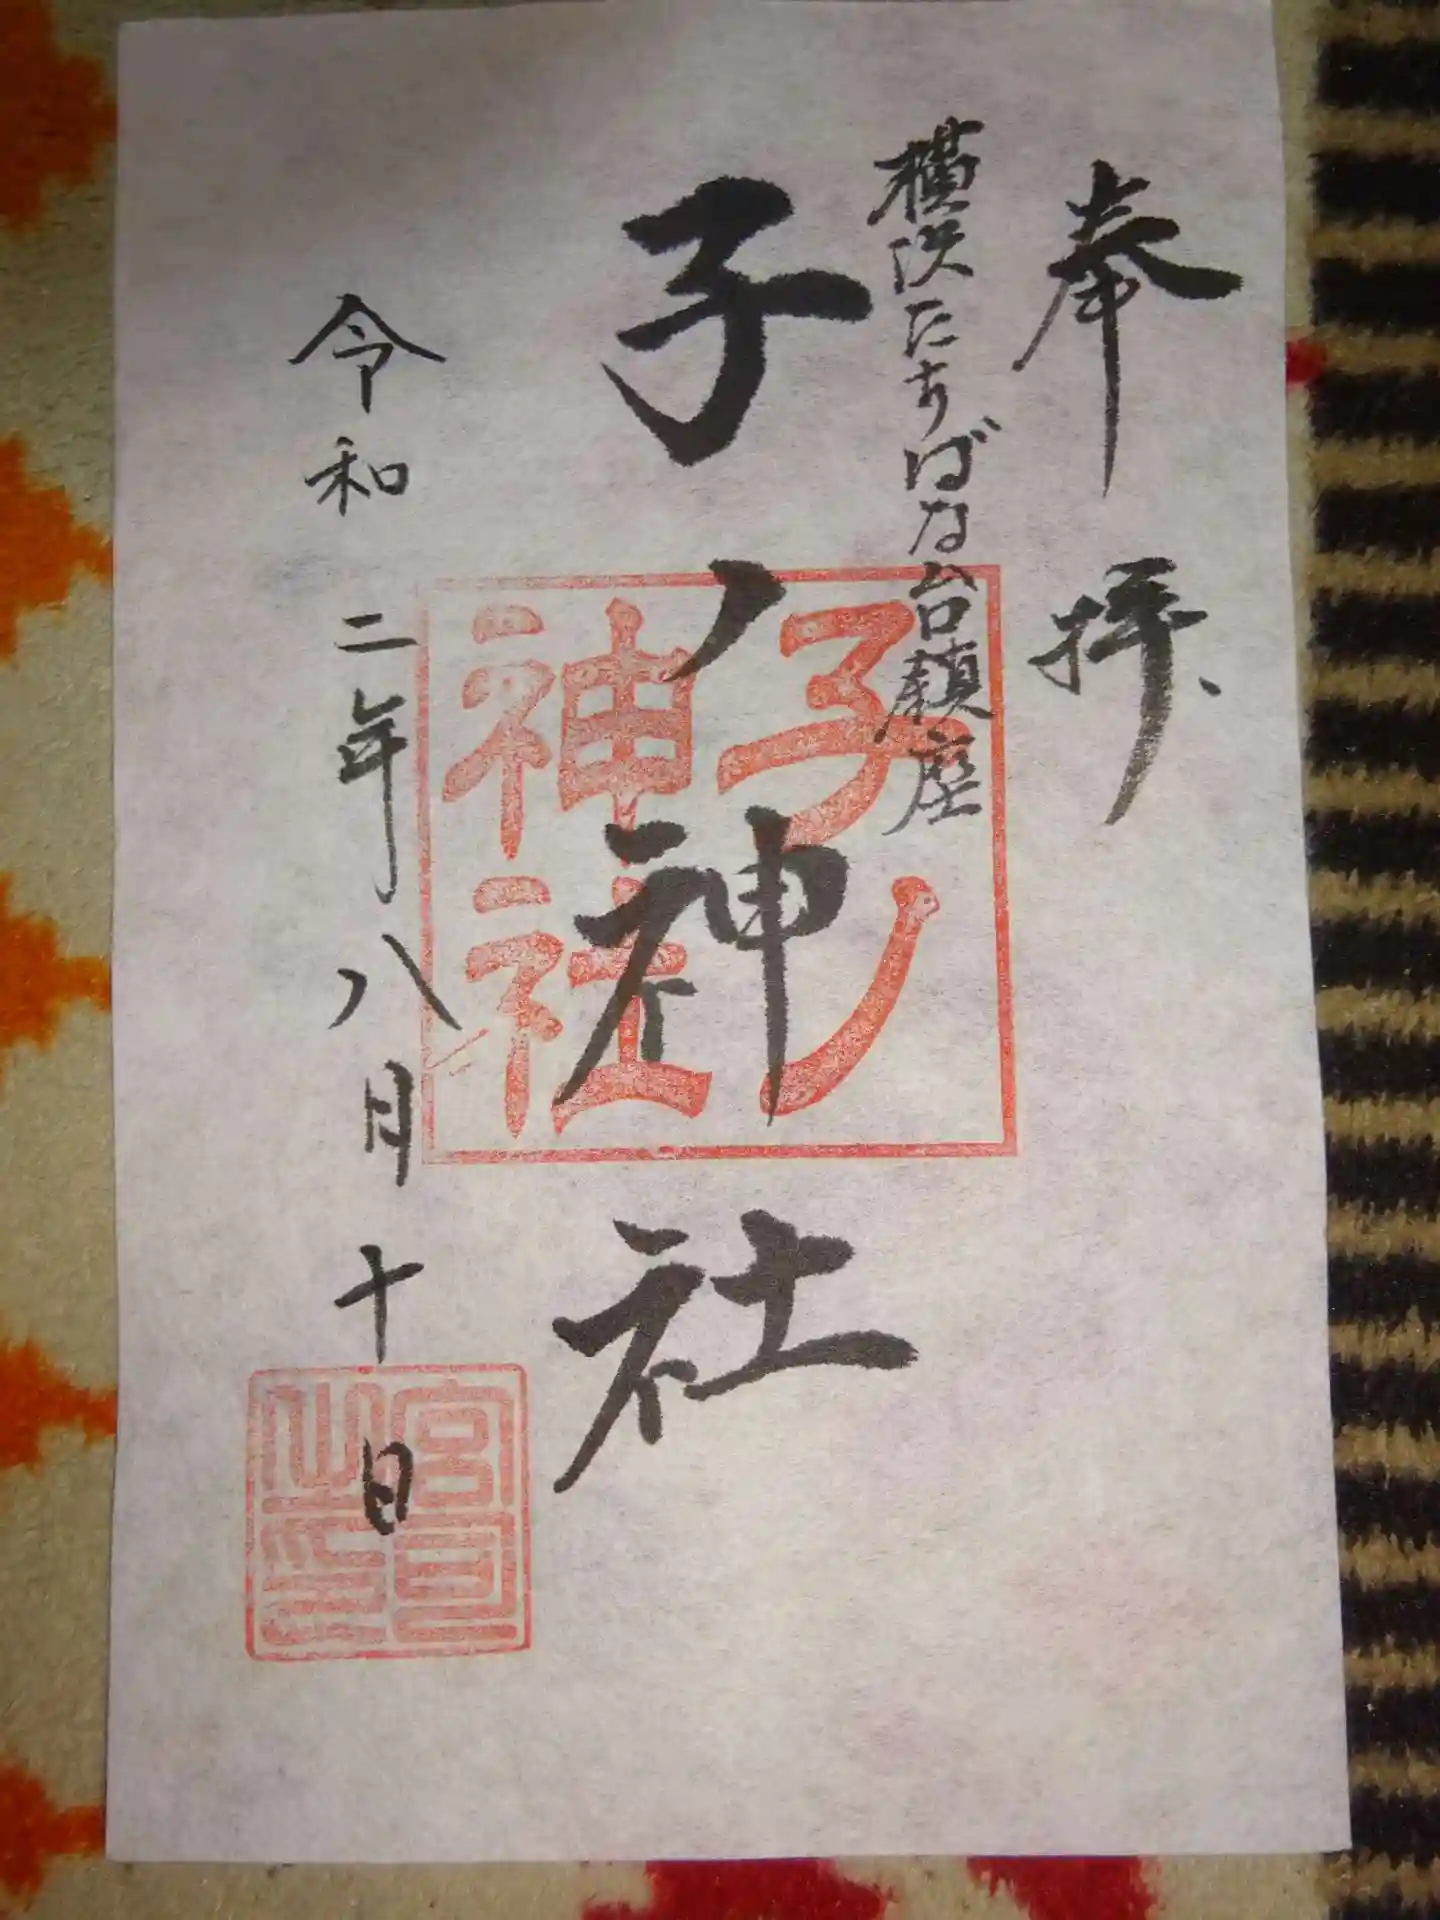 奉拝
横浜たちばな台鎮座
子ノ神社
子ノ
神社
令和二年八月十日
宮司
之印